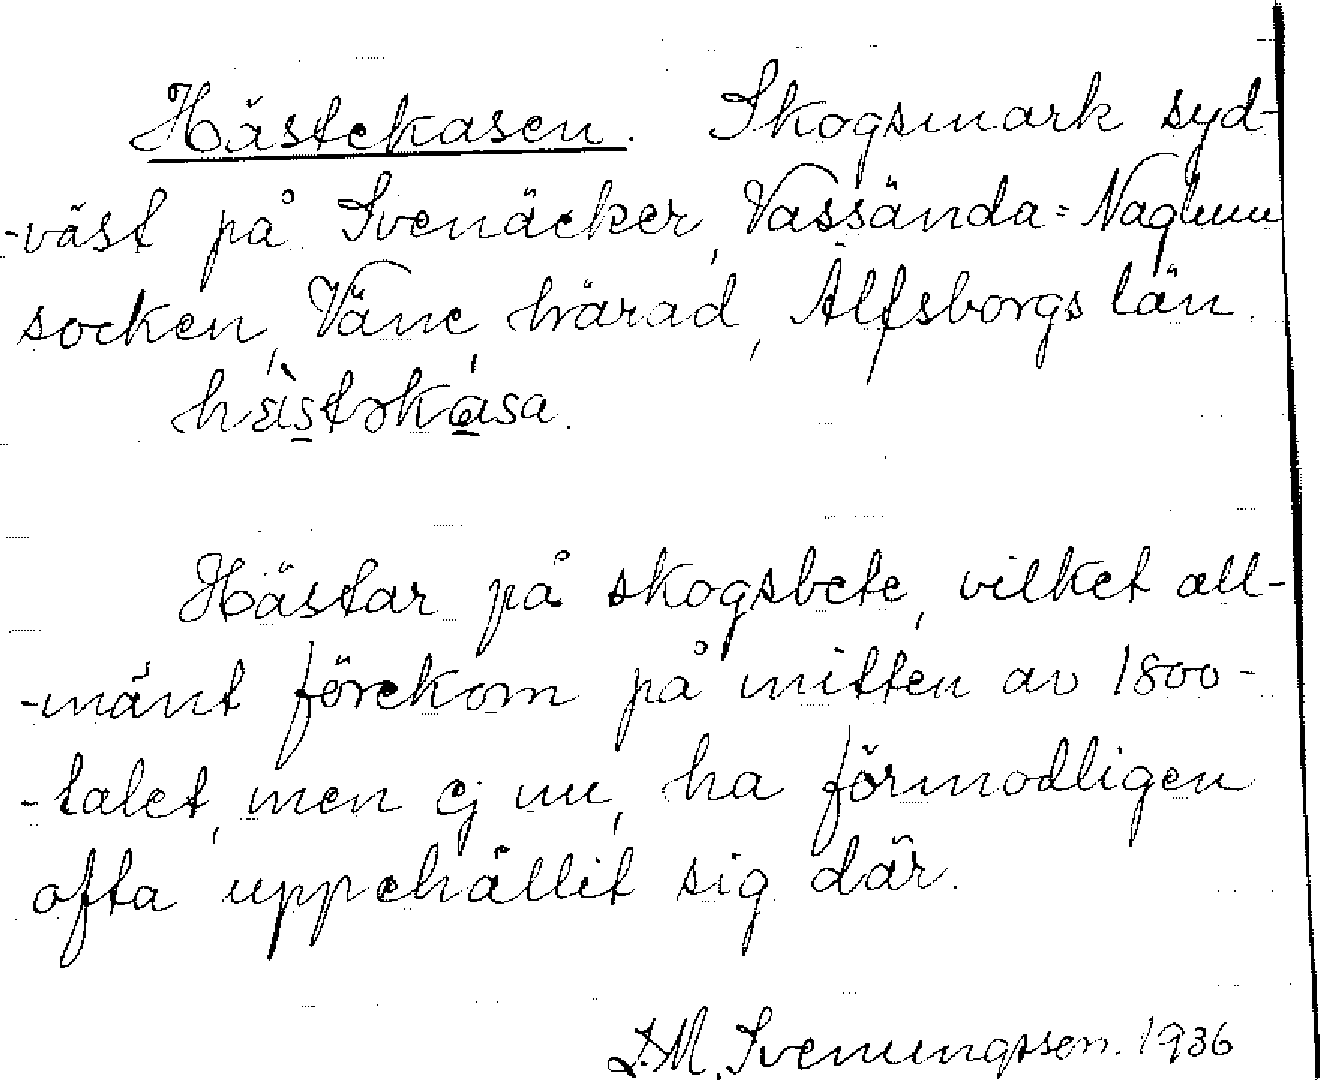 Hästekasen. Skogsmark syd-
-väst på Svenäcker, Vassända=Naglum
socken, Väne härad, Älfsborgs län.
hästəkasa.
Hästar på skogsbete, vilket all-
-mänt förekom på mitten av 1800-
-talet, men ej nu, ha förmodligen
ofta uppehållit sig där.
D.M. Svenungsson. 1936